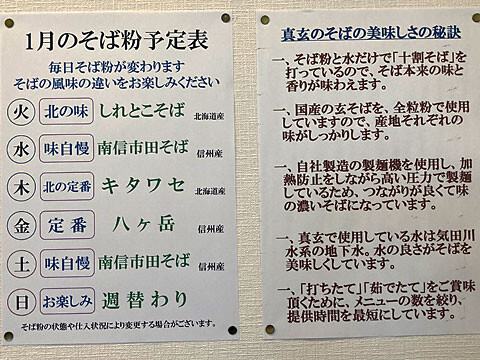 1月のそば粉予定表
毎日そば粉が変わります
そばの風味の違いをお楽しみください
火 北の味 しれとこそば 北海道産
水 味自慢 南信市田そば 信州産
木 北の定番 キタワセ 北海道産
金 定番 八ヶ岳 信州産
土 味自慢 南信市田そば 信州産
日 お楽しみ 週替わり
そば粉の状態や仕入状況により変更する場合がございます。
真玄のそばの美味しさの秘訣
一、そば粉と水だけで「十割そば」を
打っているので、そば本来の味と
香りが味わえます。
一、国産の玄そばを、全粒粉で使用
していますので、産地それぞれの
味がしっかりします。
一、自社製造の製麺機を使用し、加
熱防止をしながら高い圧力で製麺
しているため、つながりが良くて味
の濃いそばになっています。
一、真玄で使用している水は気田川
水系の地下水。水の良さがそばを
美味しくしています。
一、「打ちたて」「茹でたて」をご賞味
頂くために、メニューの数を絞り、
提供時間を最短にしています。